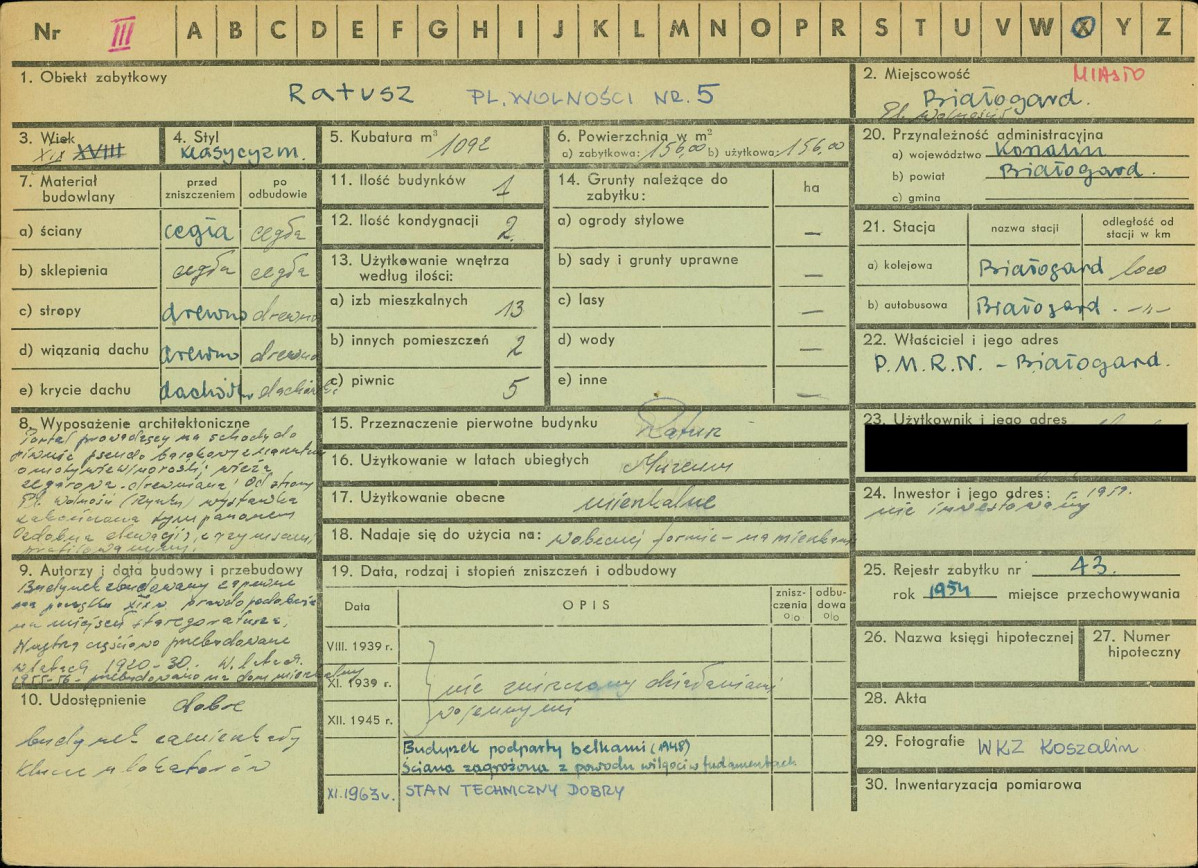 Nr III A B C D E F G H I J K L M N O P R S T U V W X Y Z
1. Obiekt zabytkowy
Ratusz PL. WOLNOŚCI NR. 5
2. Miejscowość MIASTO
Białogard.
Pl. Wolności
3. Wiek
XIX XVIII
4. Styl
klasycyzm.
5. Kubatura m³ 1092
6. Powierzchnia w m²
a) zabytkowa: 156,00 b) użytkowa: 156,00
20. Przynależność administracyjna
a) województwo Koszalin
b) powiat Białogard.
c) gmina
7. Materiał budowlany
przed zniszczeniem
po odbudowie
a) ściany cegła cegła
b) sklepienia cegła cegła
c) stropy drewno drewno
d) wiązania dachu drewno drewno
e) krycie dachu dachów. dachówk.
11. Ilość budynków 1
12. Ilość kondygnacji 2
13. Użytkowanie wnętrza według ilości:
a) izb mieszkalnych 13
b) innych pomieszczeń 2
c) piwnic 5
14. Grunty należące do zabytku: ha
a) ogrody stylowe —
b) sady i grunty uprawne —
c) lasy —
d) wody —
e) inne —
21. Stacja
nazwa stacji
odległość od stacji w km
a) kolejowa Białogard loco
b) autobusowa Białogard -"-
22. Właściciel i jego adres
P.M.R.N. - Białogard.
8. Wyposażenie architektoniczne
Portal prowadzący na schody do
piwnic pseudo barokowy
o motywie w/narośli; wieża
zegarowa - drewniana! Od strony
Pl. Wolności (Rynku) wystawka
zakończona tympanonem
Ozdobna elewacji, z gzymsami
profilowanymi.
15. Przeznaczenie pierwotne budynku Ratusz
16. Użytkowanie w latach ubiegłych Muzeum
17. Użytkowanie obecne mieszkalne
18. Nadaje się do użycia na: w obecnej formie - na mieszkania
23. Użytkownik i jego adres
24. Inwestor i jego adres: r. 1959.
nie inwestowany
9. Autorzy i data budowy i przebudowy
Budynek zbudowany zapewne
na początku XIX w. prawdopodobnie
na miejscu starego ratusza.
Wnętrza częściowo przebudowane
w latach 1920-30. W latach
1955-56 - przebudowano na dom mieszkalny
19. Data, rodzaj i stopień zniszczeń i odbudowy
Data
OPIS
znisz-
czenia
%
odbu-
dowa
%
VIII. 1939 r.
XI. 1939 r. nie zniszczony działaniami
XII. 1945 r. wojennymi
Budynek podparty belkami (1948)
Ściana zagrożona z powodu wilgoci w fudamentach
XI. 1963 r. STAN TECHNICZNY DOBRY
25. Rejestr zabytku nr 43.
rok 1954 miejsce przechowywania
26. Nazwa księgi hipotecznej
27. Numer hipoteczny
10. Udostępnienie dobre
budynek zamieszkały
klucze u lokatorów
28. Akta
29. Fotografie WKZ Koszalin
30. Inwentaryzacja pomiarowa